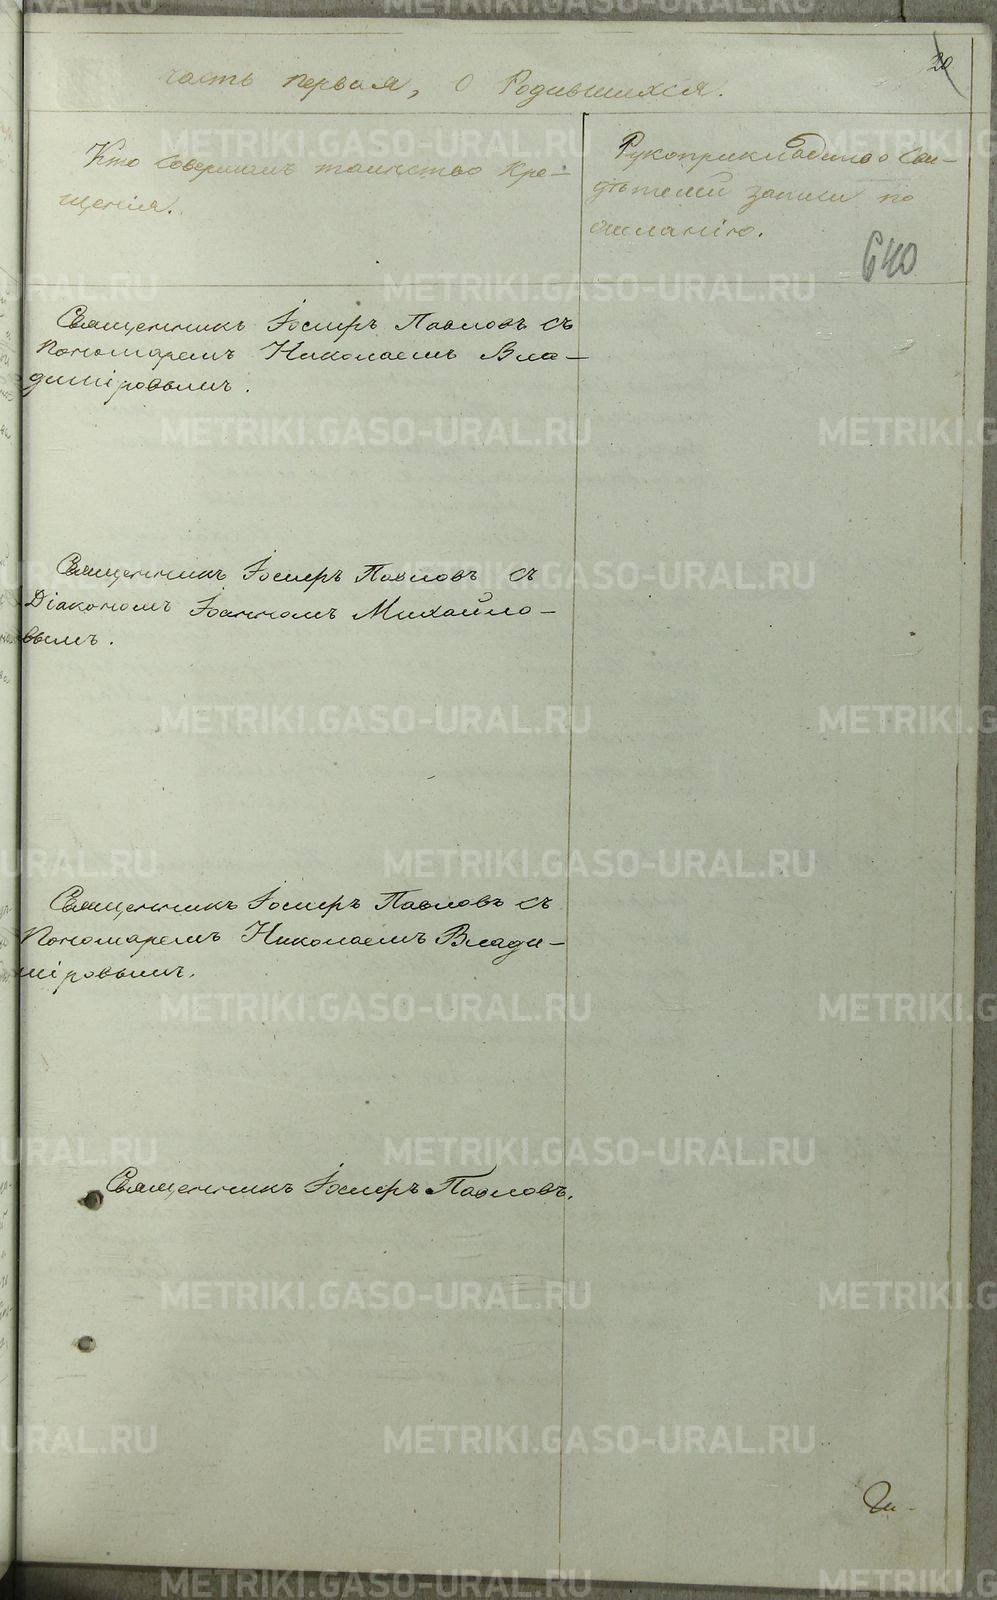 20
часть первая, О Родившихся.
Кто совершалъ таинство Кре-
щенія.
Рукоприкладство Сви-
дѣтелей записи по
желанію.
640
Священникъ Іосифъ Павловъ съ
Пономаремъ Николаемъ Вла-
диміровымъ.
Священникъ Іосифъ Павловъ съ
Діакономъ Іоанномъ Михайло-
вымъ.
Священникъ Іосифъ Павловъ съ
Пономаремъ Николаемъ Влади-
міровымъ.
Священникъ Іосифъ Павловъ.
METRIKI.GASO-URAL.RU